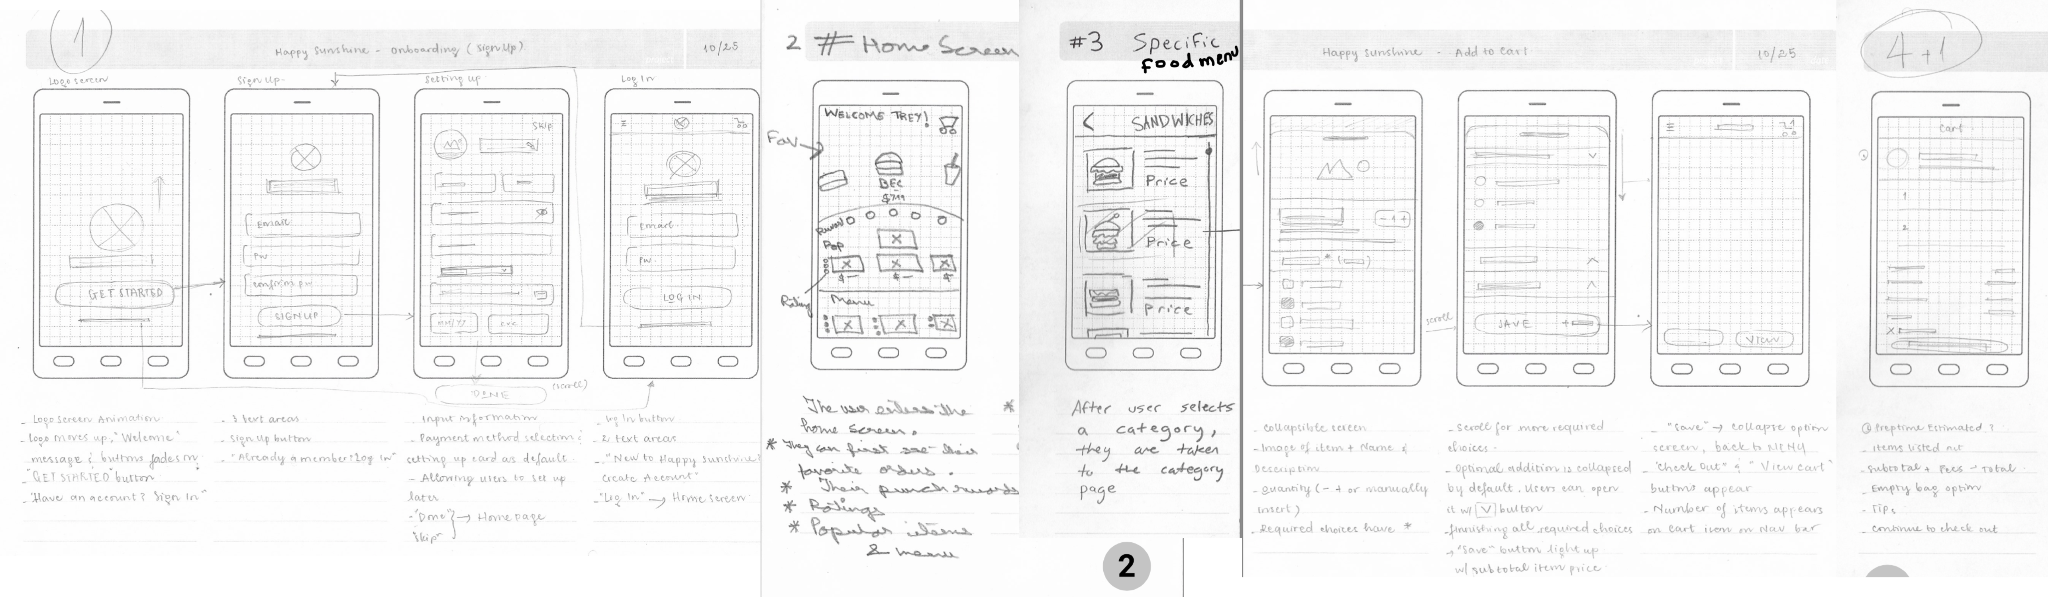 1
Happy Sunshine - Onboarding ( Sign Up)
10/25
Logo screen
Sign Up
Setting up
Log In
GET STARTED
Email
PW
confirm pw
SIGN UP
SKIP
MM/YY
cvc
DONE
(scroll)
Email
PW
LOG IN
- Logo screen Animation
- Logo moves up, "Welcome"
message & buttons fades in
- "GET STARTED" button
- "Have an account? Sign In"
- 3 text areas
- Sign Up button
- "Already a member? Log In"
Input information
- Payment method selection &
setting up card as default
- Allowing users to set up
later
- "Done"
"Skip" → Home page
- Log In button
- 2 text areas
- "New to Happy Sunshine?
Create Account"
- "Log In" → Home screen
2 # Home Screen
WELCOME TREY!
Fav
BEC
$7.99
Rewards
Pop
$-
$-
$-
Rating
Menu
The user enters the
home screen.
* They can first see their
favorite orders.
* Their punch rewards
* Ratings
* Popular items
& menu
#3 Specific
food menu
< SANDWICHES
Price
Price
Price
After user selects
a category,
they are taken
to the category
page
2
Happy Sunshine - Add to Cart
10/25
- 1 +
*
scroll
SAVE
+
VIEW
- collapsible screen
- Image of item + Name &
Description
- Quantity (- + or manually
insert)
- Required choices have *
- scroll for more required
choices
- Optional addition is collapsed
by default. Users can open
it w/ [V] button
- finishing all required choices
→ "Save" button light up
w/ subtotal item price
- "Save" → collapse option
screen, back to MENU
- "Check Out" & "View Cart"
buttons appear
- Number of items appears
on cart icon on Nav bar
4+1
Cart
1
2
X
Preptime Estimated?
- items listed out
- Subtotal + Fees → Total
- Empty bag option
- Tips
- Continue to check out